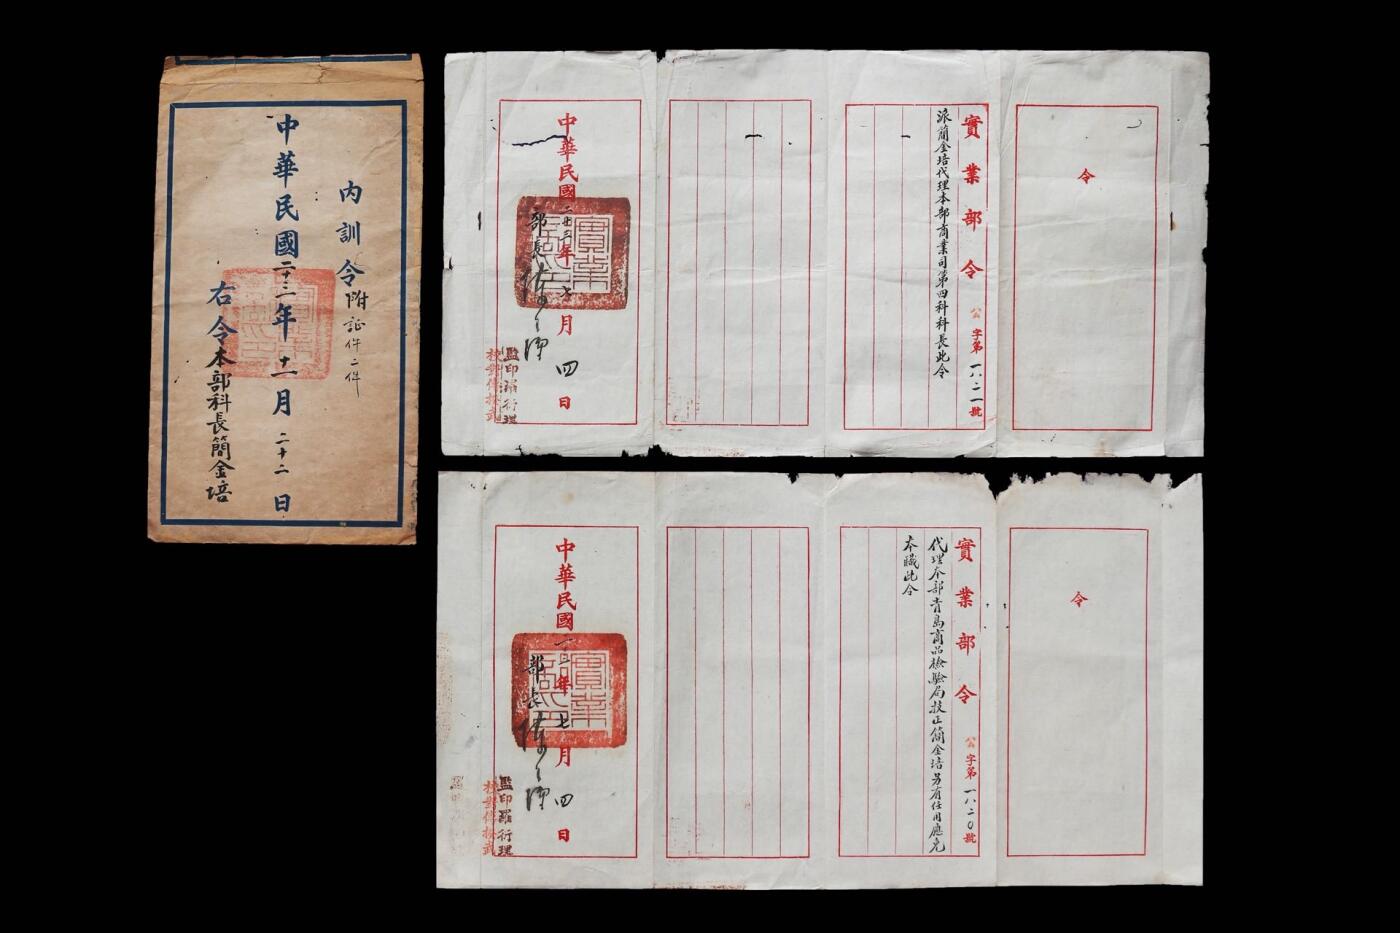 內訓令附証件二件
中華民國二十二年十一月二十二日
右令本部科長簡金培
令
實業部令 公字第一八二一號
派簡金培代理本部商業司第四科科長此令
中華民國二十三年七月四日
部長
實業
監印羅衍理
校對傅
令
實業部令 公字第一八二〇號
代理本部青島商品檢驗局技正簡金培另有任用應免
本職此令
中華民國二十三年七月四日
部長
實業
監印羅衍理
校對傅